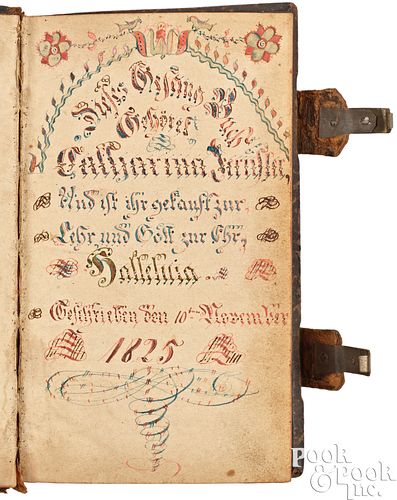 Dieses Gesang Buch
Gehöret
Catharina
Und ist ihr gekauft zur
Lehr, und Gott zur Ehr,
Halleluia.
Geschrieben den 10ten November
1825
POOK
& POOK
Inc.